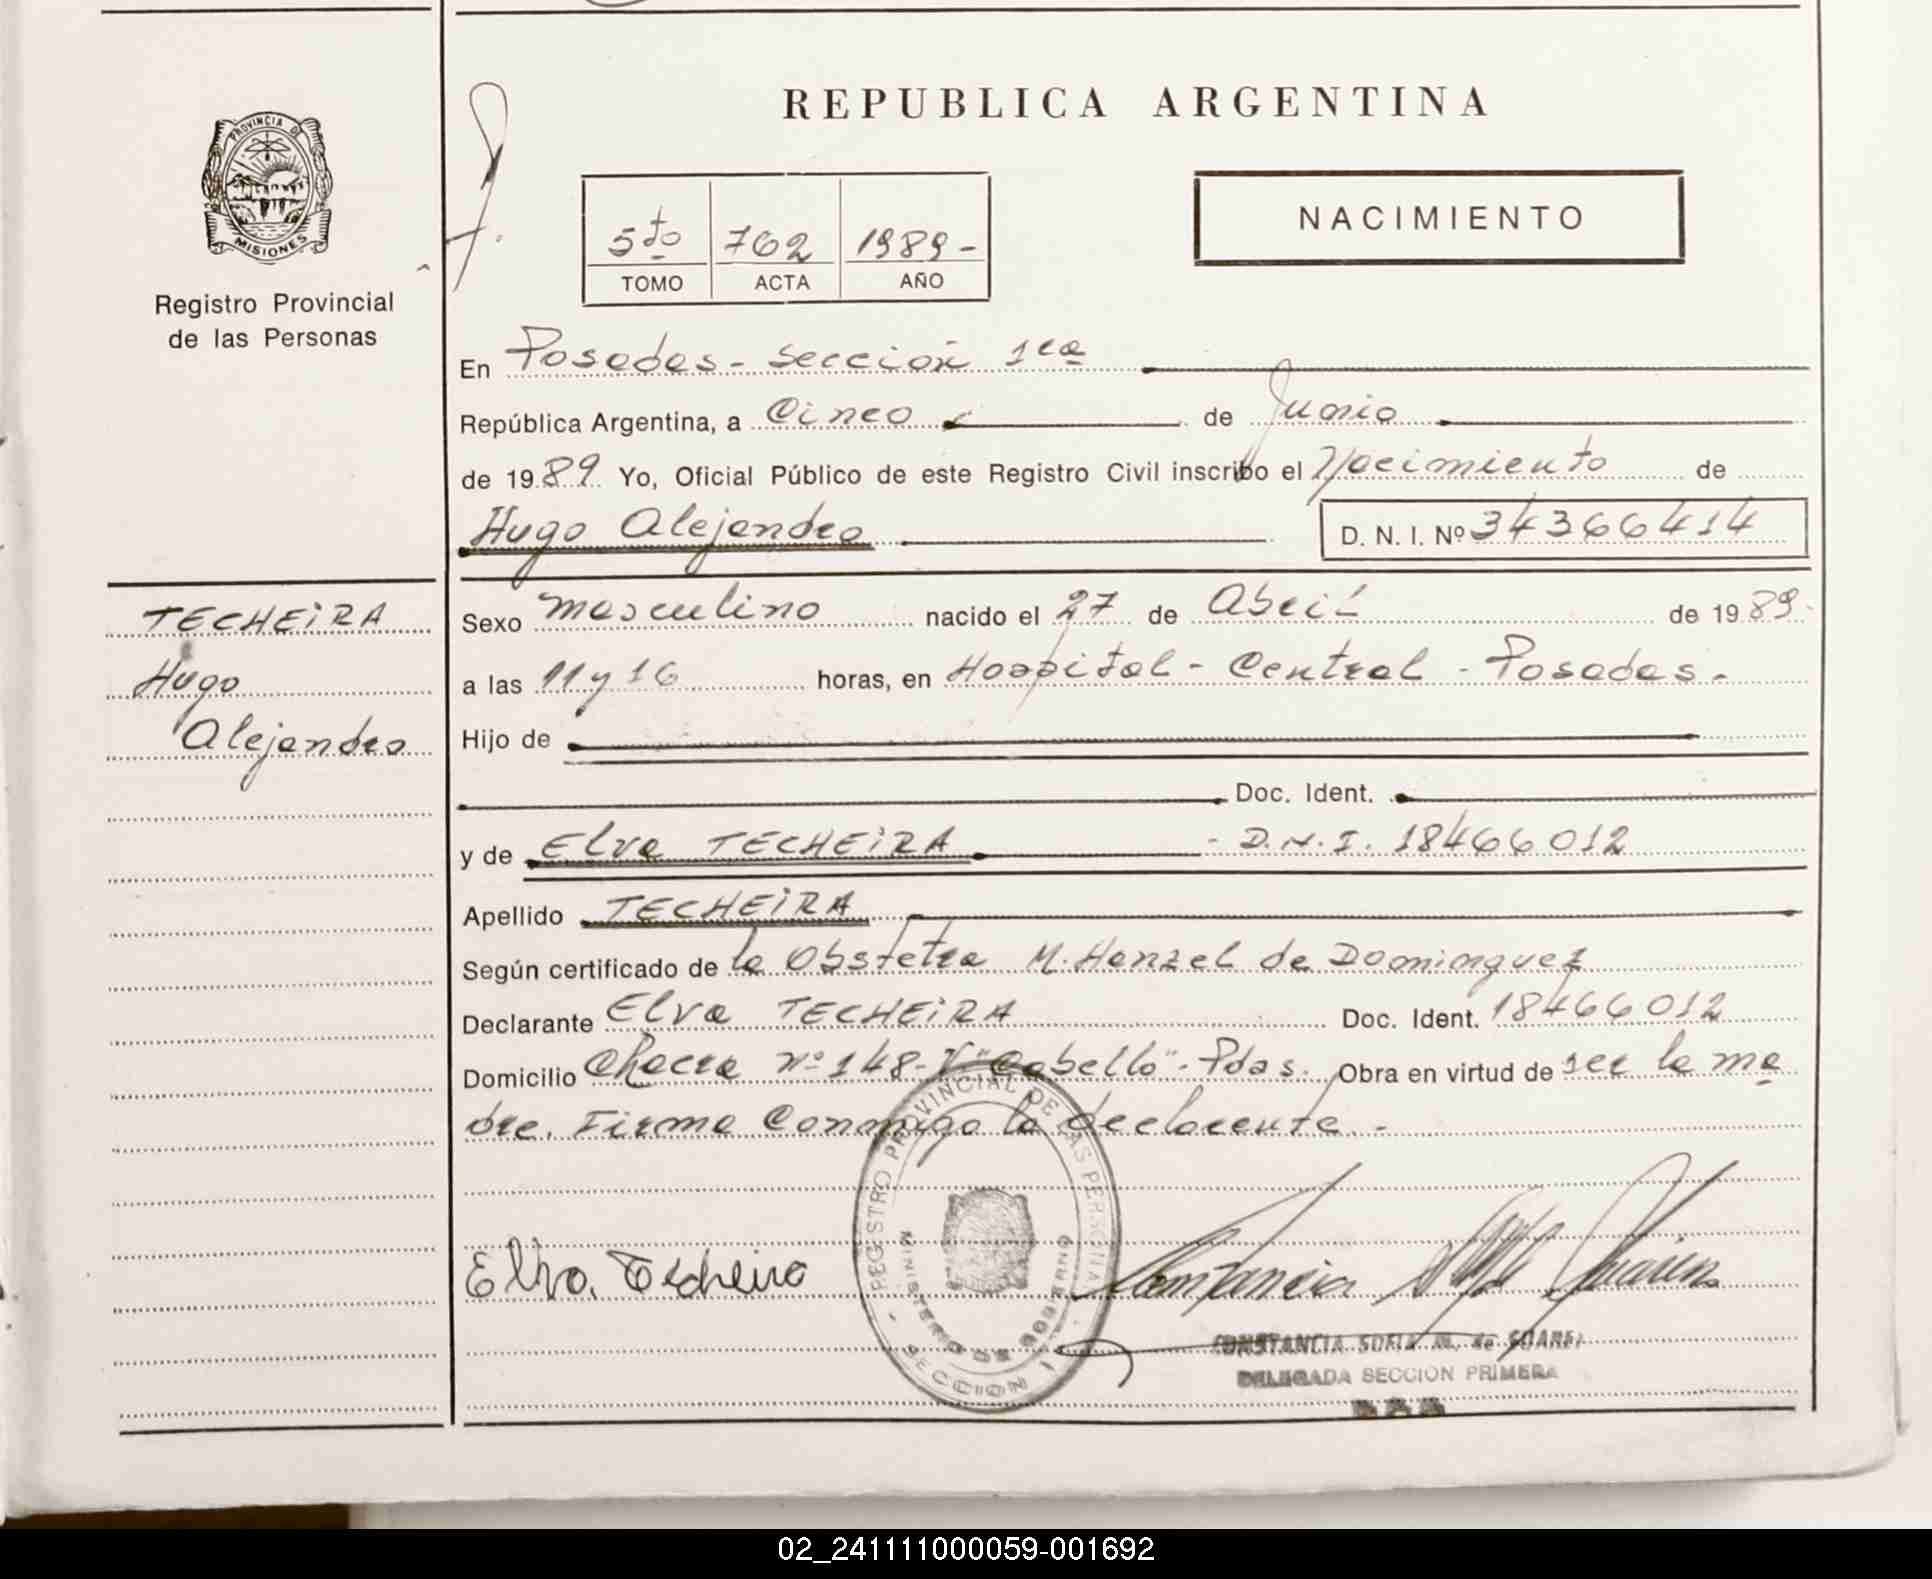 REPUBLICA ARGENTINA
PROVINCIA DE
MISIONES
Registro Provincial
de las Personas
5to 762 1989-
TOMO ACTA AÑO
NACIMIENTO
En Posadas - Sección 1ra
República Argentina, a Cinco de Junio
de 1989 Yo, Oficial Público de este Registro Civil inscribo el Nacimiento de
Hugo Alejandro D. N. I. Nº 34366414
TECHEiRA
Hugo
Alejandro
Sexo masculino nacido el 27 de Abril de 1989.
a las 11 y 16 horas, en Hospital - Central - Posadas.
Hijo de
Doc. Ident.
y de Elva TECHEiRA - D.N.I. 18466012
Apellido TECHEiRA
Según certificado de la Obstetra M. Hanzel de Dominguez
Declarante Elva TECHEiRA Doc. Ident. 18466012
Domicilio Chacra nº 148 - Vº "Cabello" - Pdas. Obra en virtud de ser la ma
dre. Firma Conmigo la declarante. -
REGISTRO PROVINCIAL DE LAS PERSONAS
MINISTERIO DE GOBIERNO
- SECCION 1ª -
Elva. Techeira
CONSTANCIA SOFIA M. de SUAREZ
DELEGADA SECCION PRIMERA
02_241111000059-001692